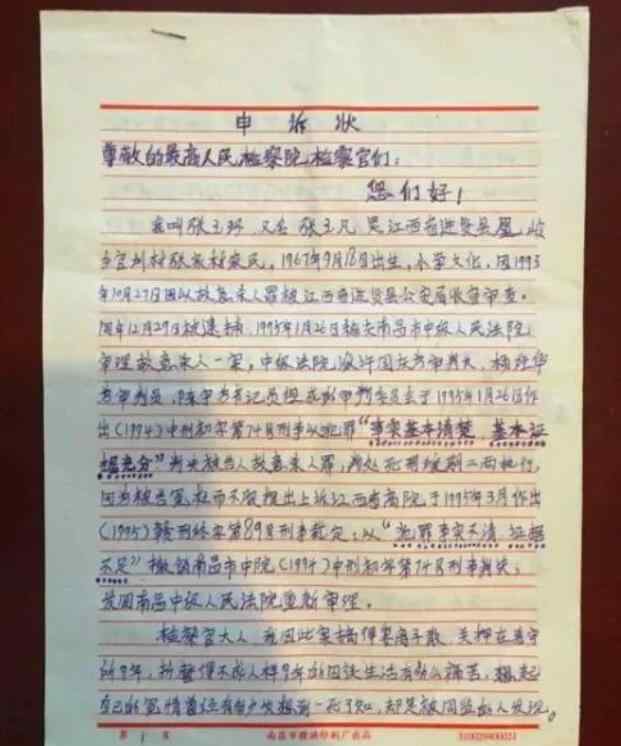 申诉状
尊敬的最高人民检察院检察官们：
您们好！
我叫张玉环，又名张玉凡是江西省进贤县凰岭
乡宫州村张家村农民，1967年9月18日出生，小学文化，因1993
年10月27日因以故意杀人罪被江西省进贤县公安局收容审查。
同年12月29日被逮捕，1995年1月26日移交南昌市中级人民法院
审理故意杀人一案，中级法院
为审判员，陈 为书记员组成 审判委员会于1995年1月26日作
出（1994）中刑初字第74号刑事以犯罪“事实基本清楚，基本证
据充分”判决被告人故意杀人罪，判处死刑缓期二年执行，
因为被告冤枉而不服提出上诉江西省高院于1995年3月作出
（1995）赣刑终字第89号刑事裁定，以“犯罪事实不清，证据
不足”撤销南昌市中院（1994）中刑初字第74号刑事判决，
发回南昌中级人民法院重新审理。
检察官大人，我因此案搞得妻离子散，关押在看守
所9年，折磨得不成人样9年的四铁生活有多么痛苦，想起
自己的冤情曾经有多少次想到一死了知，却是被同监的人发现。
第 1 页
南昌市 印刷厂出品